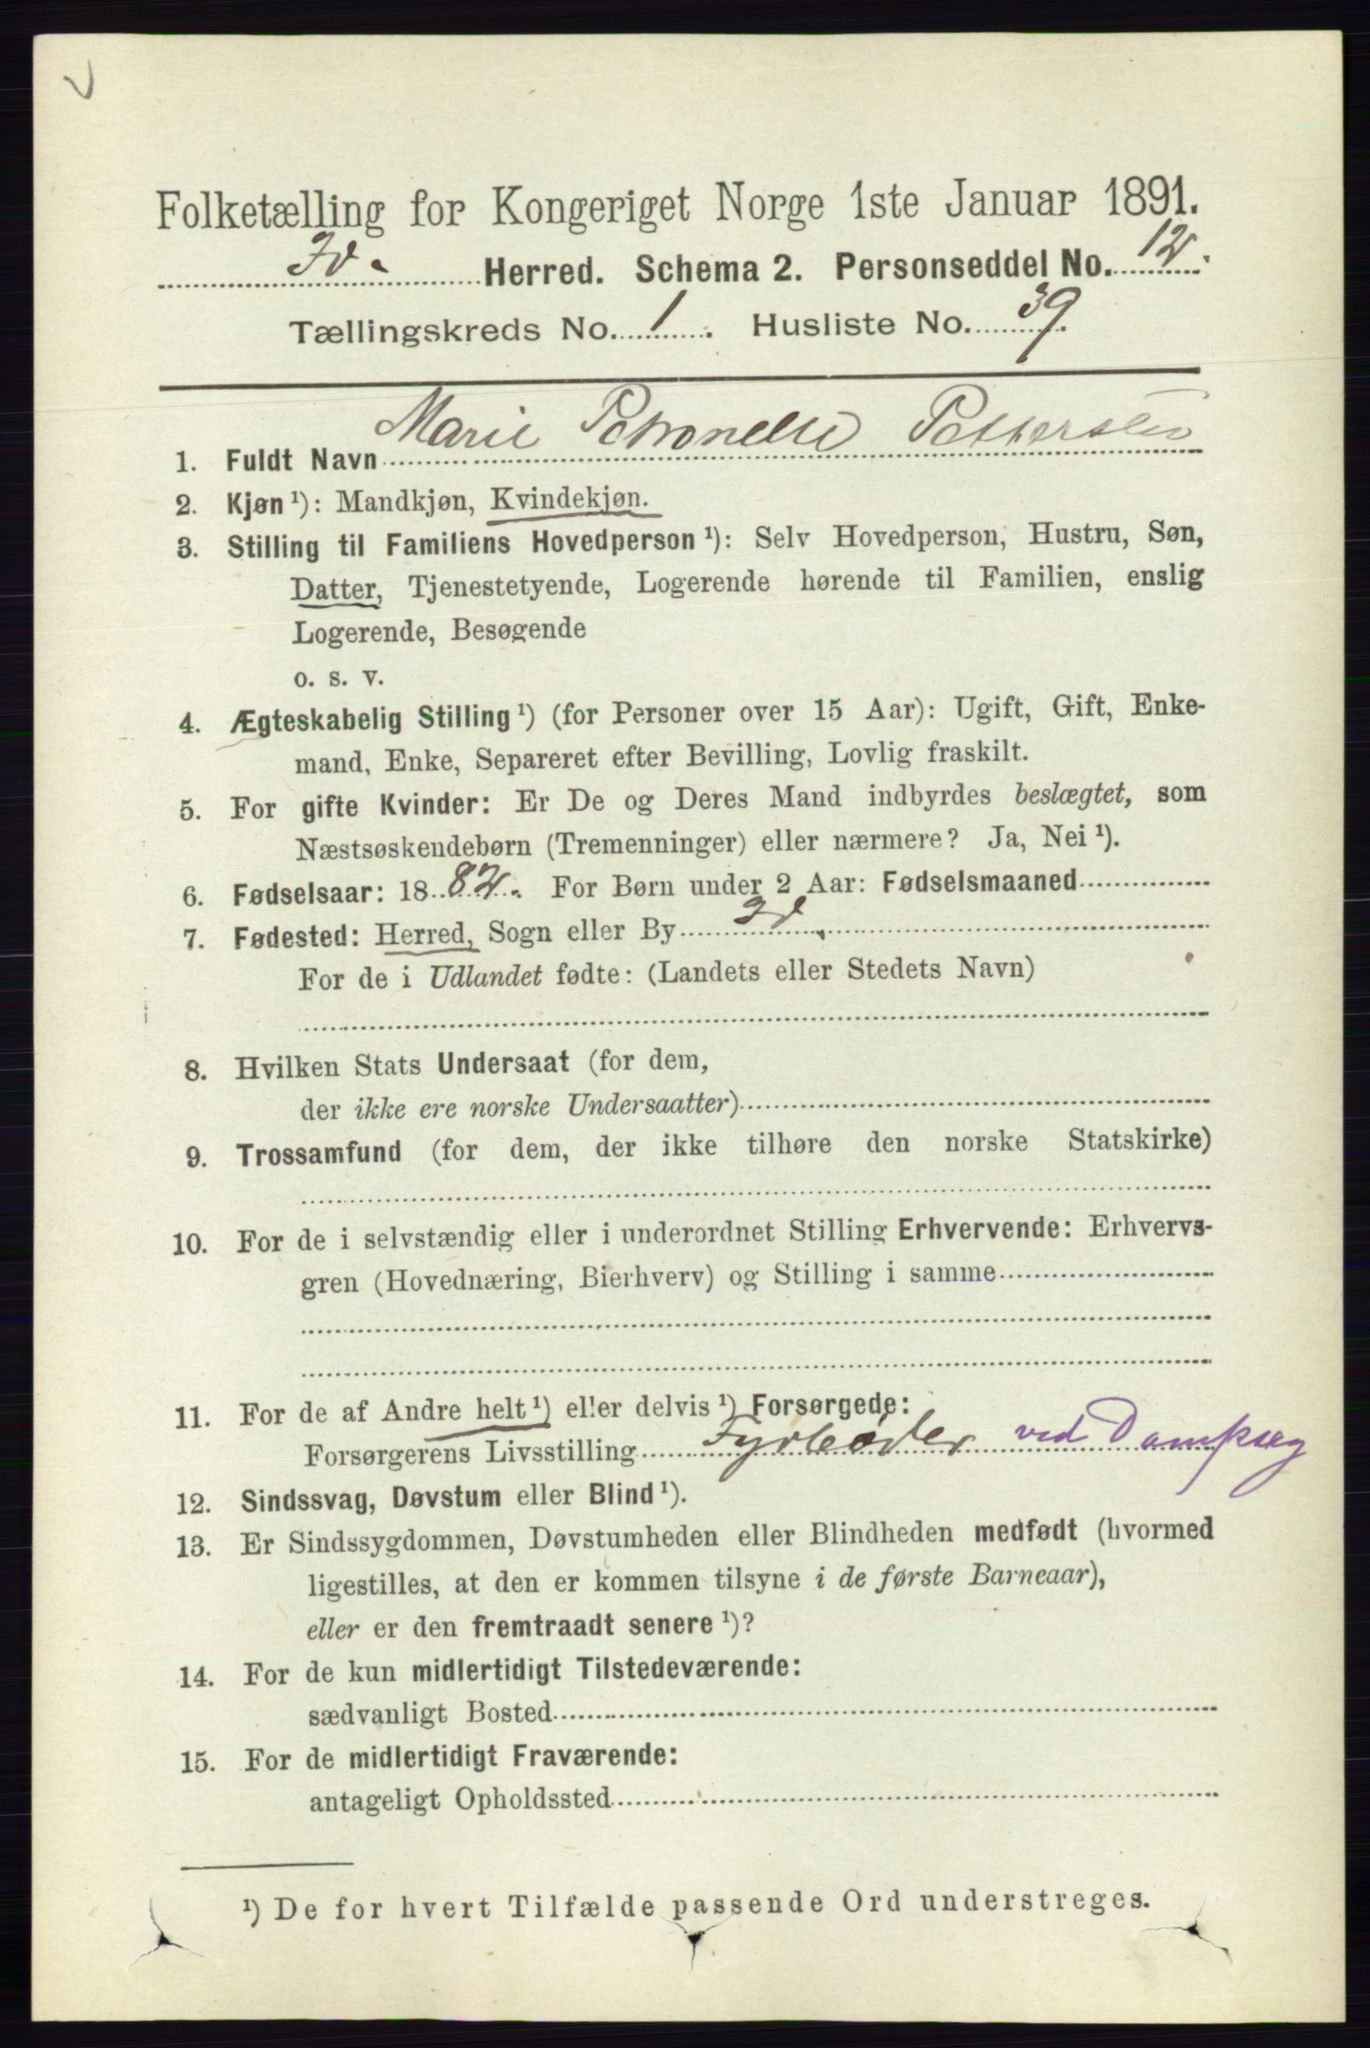 Folketælling for Kongeriget Norge 1ste Januar 1891.
Id. Herred. Schema 2. Personseddel No. 12.
Tællingskreds No. 1. Husliste No. 39.
1. Fuldt Navn Marie Petronelle Pettersen
2. Kjøn¹): Mandkjøn, Kvindekjøn.
3. Stilling til Familiens Hovedperson¹): Selv Hovedperson, Hustru, Søn,
Datter, Tjenestetyende, Logerende hørende til Familien, enslig
Logerende, Besøgende
o. s. v.
4. Ægteskabelig Stilling¹) (for Personer over 15 Aar): Ugift, Gift, Enke-
mand, Enke, Separeret efter Bevilling, Lovlig fraskilt.
5. For gifte Kvinder: Er De og Deres Mand indbyrdes beslægtet, som
Næstsøskendebørn (Tremenninger) eller nærmere? Ja, Nei¹).
6. Fødselsaar: 1882. For Børn under 2 Aar: Fødselsmaaned
7. Fødested: Herred, Sogn eller By Id.
For de i Udlandet fødte: (Landets eller Stedets Navn)
8. Hvilken Stats Undersaat (for dem,
der ikke ere norske Undersaatter)
9. Trossamfund (for dem, der ikke tilhøre den norske Statskirke)
10. For de i selvstændig eller i underordnet Stilling Erhvervende: Erhvervs-
gren (Hovednæring, Bierhverv) og Stilling i samme
11. For de af Andre helt¹) eller delvis¹) Forsørgede:
Forsørgerens Livsstilling Fyrbøder ved Dampsag
12. Sindssvag, Døvstum eller Blind¹).
13. Er Sindssygdommen, Døvstumheden eller Blindheden medfødt (hvormed
ligestilles, at den er kommen tilsyne i de første Barneaar),
eller er den fremtraadt senere¹)?
14. For de kun midlertidigt Tilstedeværende:
sædvanligt Bosted
15. For de midlertidigt Fraværende:
antageligt Opholdssted
¹) De for hvert Tilfælde passende Ord understreges.